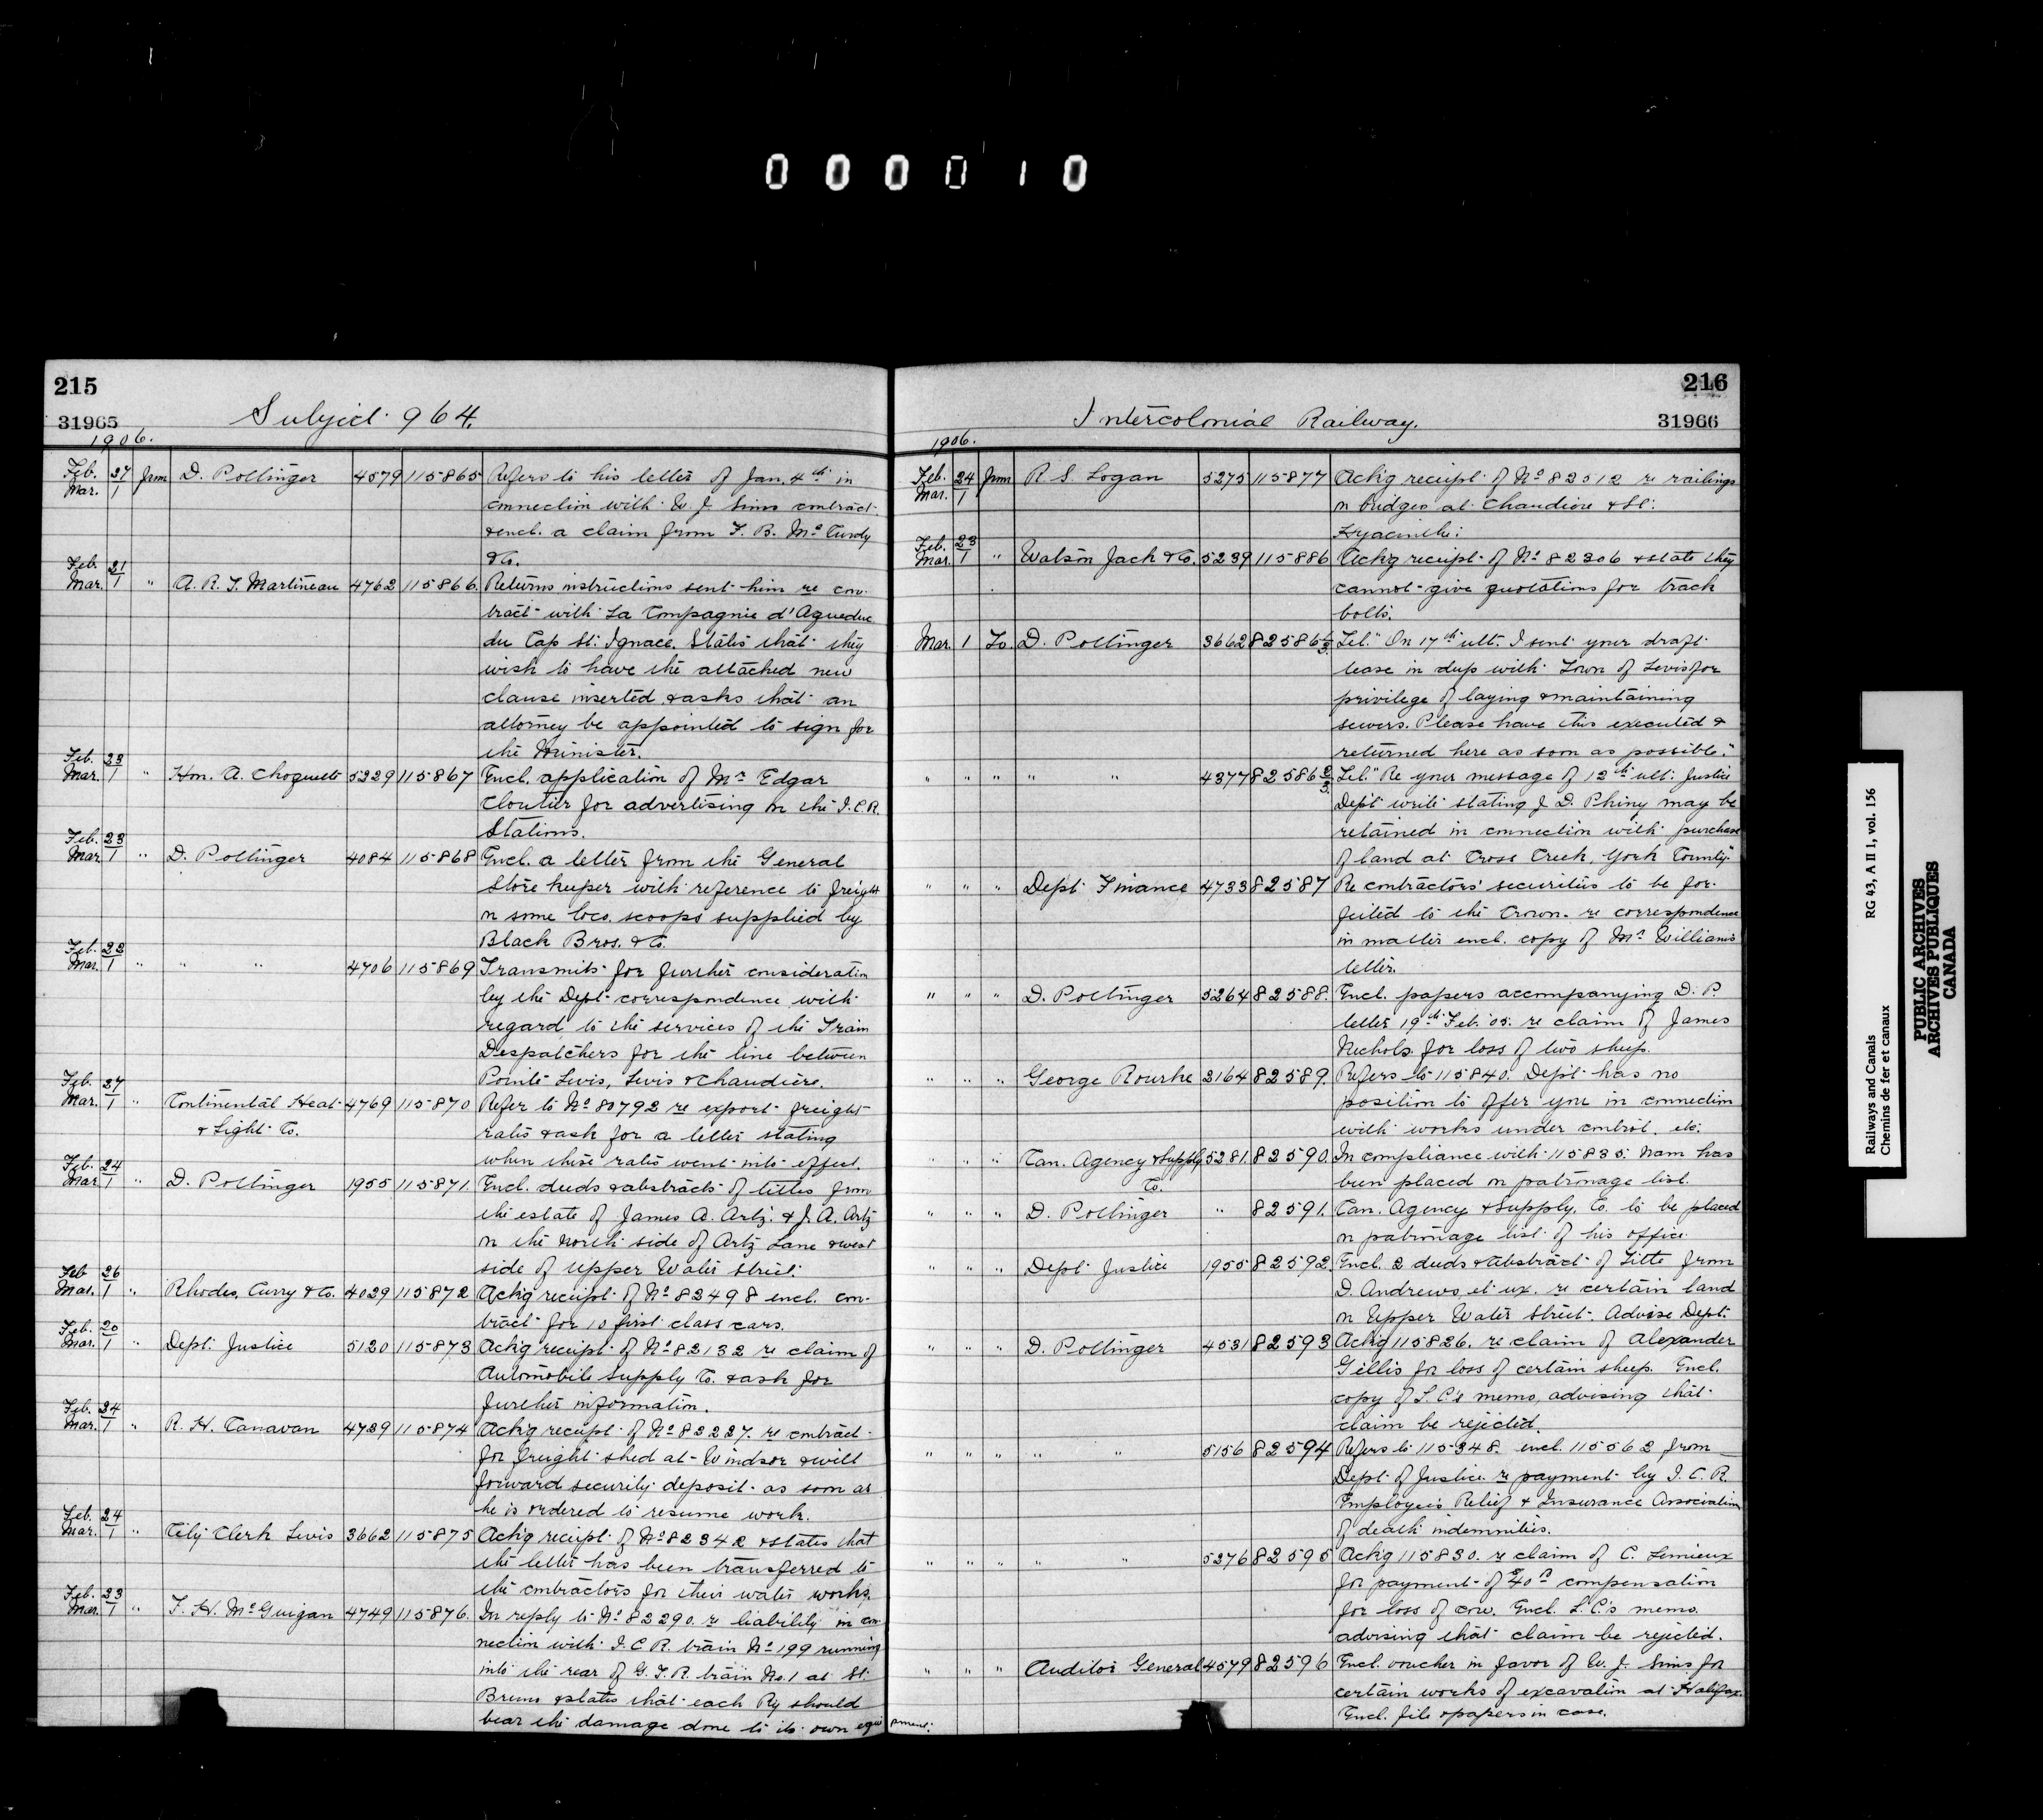 000010
215
31965
Subject 964.
1906.
Feb. 27 Mar. 1 from D. Pottinger 4579 115865 Refers to his letter of Jan. 4th in
connection with W. J. Sims contract
& encl. a claim from F. B. McCurdy
& Co.
Feb. 21 Mar. 1 " A. R. T. Martineau 4762 115866. Returns instructions sent him re con-
tract with La Compagnie d'Aqueduc
du Cap St. Ignace. States that they
wish to have the attached new
clause inserted & asks that an
attorney be appointed to sign for
the Minister.
Feb. 23 Mar. 1 " Hon. A. Choquette 5229 115867 Encl. application of Mr Edgar
Cloutier for advertising in the I.C.R.
Stations.
Feb. 23 Mar. 1 " D. Pottinger 4084 115868 Encl. a letter from the General
Store keeper with reference to freight
on some loco. scoops supplied by
Black Bros. & Co.
Feb. 22 Mar. 1 " " " 4706 115869 Transmits for further consideration
by the Dept. correspondence with
regard to the services of the Train
Despatchers for the line between
Pointe Levis, Levis & Chaudiere.
Feb. 27 Mar. 1 " Continental Heat 4769 115870 Refer to No 80792 re export freight
& Light Co. rates & ask for a letter stating
when these rates went into effect.
Feb. 24 Mar 1 " D. Pottinger 1955 115871. Encl. deeds & abstracts of titles from
the estate of James A. Artz. & J. A. Artz
on the North side of Artz Lane & west
side of Upper Water Street.
Feb 26 Mar. 1 " Rhodes, Curry & Co. 4029 115872 Ackg receipt of No 82498 encl. con-
tract for 10 first class cars.
Feb. 20 Mar. 1 " Dept. Justice 5120 115873 Ackg receipt of No 82132 re claim of
Automobile Supply Co. & ask for
further information.
Feb. 24 Mar. 1 " R. H. Canavan 4739 115874 Ackg receipt of No 82227. re contract
for freight shed at Windsor & will
forward security deposit as soon as
he is ordered to resume work.
Feb. 24 Mar. 1 " City Clerk Levis 3662 115875 Ackg receipt of No 82342 & states that
the letter has been transferred to
the contractors for their water works.
Feb. 23 Mar. 1 " F. H. McGuigan 4749 115876. In reply to No 82290. re liability in con-
nection with I.C.R. train No 199 running
into the rear of G.T.R. train No. 1 at St.
Bruno & states that each Ry should
bear the damage done to its own equipment.
216
31966
Intercolonial Railway.
1906.
Feb. 24 Mar. 1 from R. S. Logan 5275 115877 Ackg receipt of No 82512 re railings
on bridges at Chaudiere & St.
Hyacinthe.
Feb. 23 Mar. 1 " Watson Jack & Co. 5239 115886 Ackg receipt of No 82306 & state they
cannot give quotations for track
bolts.
Mar. 1 To. D. Pottinger 3662 82586 1/3. Tel. "On 17th ult. I sent your draft
lease in dup with Town of Levis for
privilege of laying & maintaining
sewers. Please have this executed &
returned here as soon as possible."
" " " " " 4377 82586 2/3. Tel. "Re your message of 12th ult. Justice
Dept write stating J. D. Phiny may be
retained in connection with purchase
of land at Cross Creek, York County."
" " " Dept. Finance 4733 82587 Re contractors' securities to be for-
feited to the Crown. re correspondence
in matter encl. copy of Mr Williams
letter.
" " " D. Pottinger 5264 82588. Encl. papers accompanying D. P.
letter 19th Feb. '05. re claim of James
Nichols for loss of two sheep.
" " " George Rourke 2164 82589. Refers to 115840. Dept has no
position to offer you in connection
with works under control. etc.
" " " Can. Agency & Supply 5281. 82590. In compliance with 115835. Nam has
Co. been placed on patronage list.
" " " D. Pottinger " 82591. Can. Agency & Supply, Co. to be placed
on patronage list of his office
" " " Dept Justice 1955 82592 Encl. 2 deeds & Abstract of Title from
D. Andrews, et ux. re certain land
on Upper Water Street. Advise Dept.
" " " D. Pottinger 4531 82593 Ackg 115826. re claim of Alexander
Gillis for loss of certain sheep. Encl.
copy of L.C.'s memo, advising that
claim be rejected.
" " " " " 5156 82594 Refers to 115348. encl. 115562 from
Dept of Justice re payment by I.C.R.
Employees Relief & Insurance Association
of death indemnities.
" " " " " 5276 82595 Ackg 115830. re claim of C. Lemieux
for payment of $40 compensation
for loss of cow. Encl. L.C.'s memo.
advising that claim be rejected.
" " " Auditor General 4579 82596 Encl. voucher in favor of W. J. Sims for
certain works of excavation at Halifax.
Encl. file & papers in case.
Railways and Canals RG 43, A II 1, vol. 156
Chemins de fer et canaux
PUBLIC ARCHIVES
ARCHIVES PUBLIQUES
CANADA